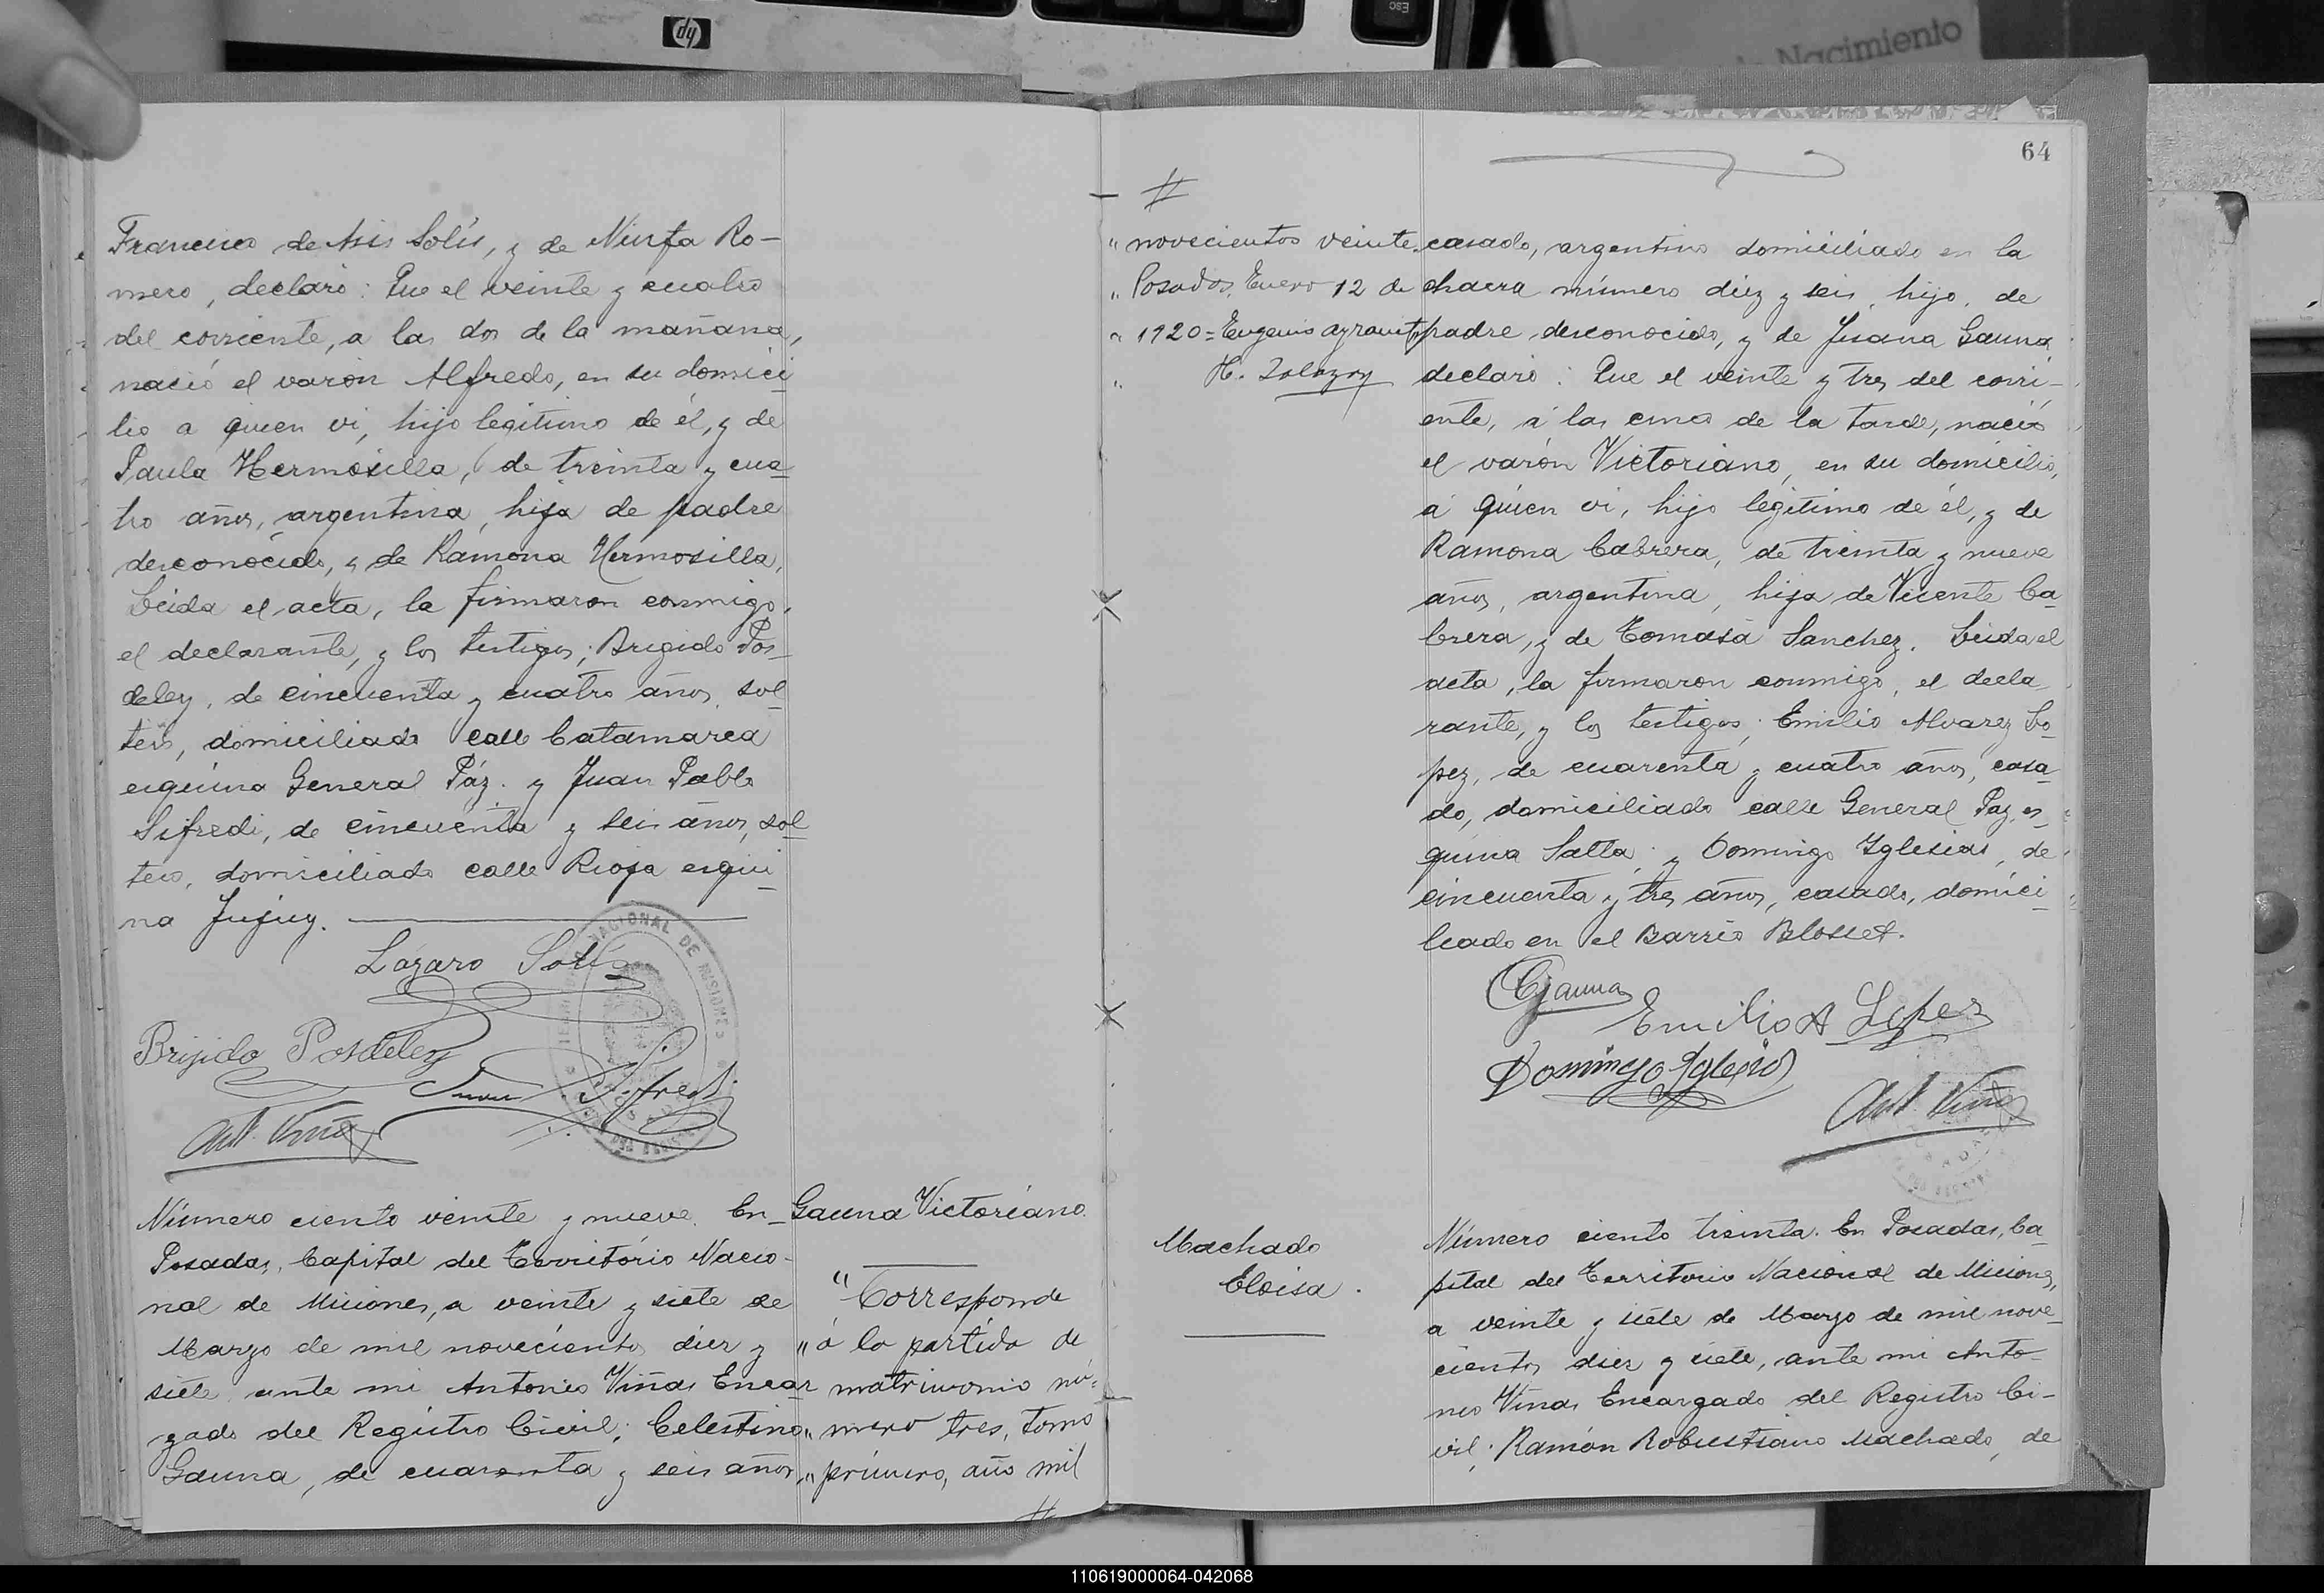 hp
Esc
Nacimiento
Francisco de Asis Solís, y de Ninfa Ro-
mero, declaró: Que el veinte y cuatro
del corriente, a las dos de la mañana,
nació el varón Alfredo, en su domici
lio a quien vi, hijo legitimo de él, y de
Paula Hermosilla, de treinta y cua
tro años, argentina, hija de padre
desconocido, y de Ramona Hermosilla.
Leida el acta, la firmaron conmigo,
el declarante, y los testigos; Brigido Pos
deley, de cincuenta y cuatro años, sol
tero, domiciliado calle Catamarca
esquina General Páz. y Juan Pablo
Sifredi, de cincuenta y seis años, sol
tero, domiciliado calle Rioja esqui
na Jujuy.
Lázaro Solís
Brijido Posdeley
Juan P. Sifredi
Ant. Viñas
NACIONAL DE MISIONES
Número ciento veinte y nueve. En
Posadas, Capital del Territorio Nacio-
nal de Misiones, a veinte y siete de
Marzo de mil novecientos diez y
siete ante mi Antonio Viñas Encar
gado del Registro Civil; Celestino
Gauna, de cuarenta y seis años,
Gauna Victoriano.
"Corresponde
"á la partida de
matrimonio nú-
"mero tres, tomo
"primero, año mil
#
64
#
"novecientos veinte.
"Posadas, Enero 12 de
"1920=Eugenio
H.
casado, argentino domiciliado en la
chacra número diez y seis, hijo, de
padre desconocido, y de Juana Gauna
declaró: Que el veinte y tres del corri-
ente, á las cinco de la tarde, nació
el varón Victoriano, en su domicilio,
á quien vi, hijo legitimo de él, y de
Ramona Cabrera, de treinta y nueve
años, argentina, hija de Vicente Ca
brera, y de Tomasa Sanchez. Leida el
acta, la firmaron conmigo, el decla
rante, y los testigos; Emilio Alvarez Lo
pez, de cuarenta y cuatro años, casa
do, domiciliado calle General Paz, es
quina Salta; y Domingo Iglesias, de
cincuenta y tres años, casado, domici
liado en el Barrio Blosset.
CGauna
Emilio A Lopez
Domingo Iglesias
Ant. Viñas
Machado
Eloisa.
Número ciento treinta. En Posadas, Ca
pital del Territorio Nacional de Misiones,
a veinte y siete de Marzo de mil nove
cientos diez y siete, ante mi Anto-
nio Viñas Encargado del Registro Ci-
vil; Ramón Robustiano Machado, de
110619000064-042068